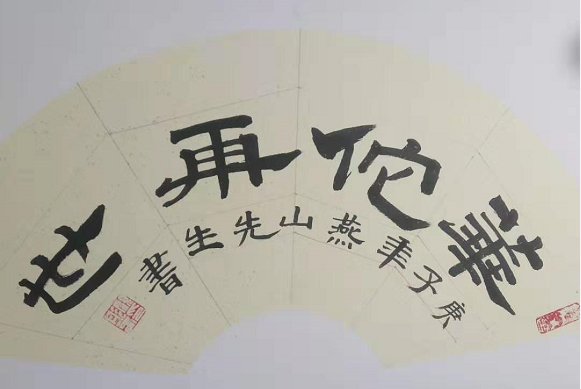 華佗再世
庚子年燕山先生書